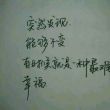 突然发现
能够不变
有时候就是一种最难
幸福